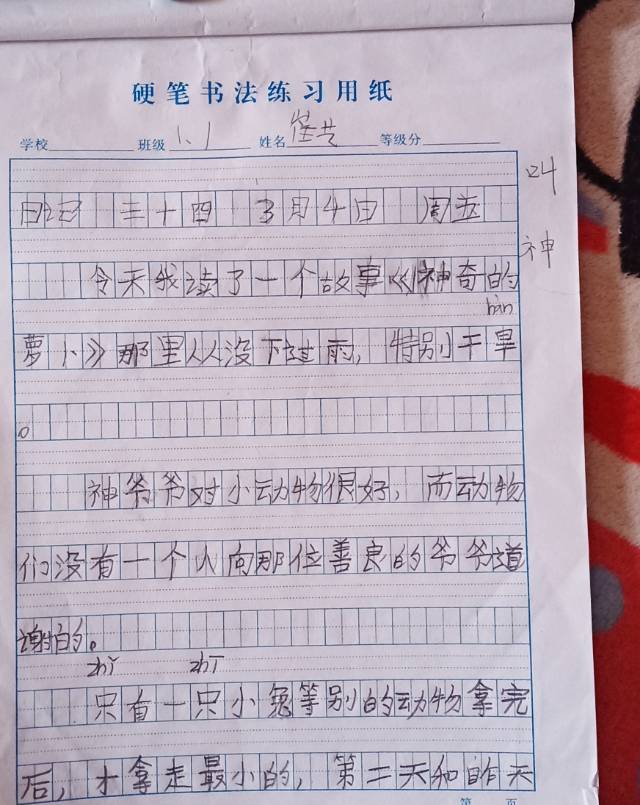 硬笔书法练习用纸
学校 班级 1.1 姓名 等级分
24
日记 三十四 3月4日 周五
神
今天我读了一个故事《神奇的
hàn
萝卜》那里从没下过雨，特别干旱
。
神爷爷对小动物很好，而动物
们没有一个人向那位善良的爷爷道
谢的。
zhǐ zhī
只有一只小兔等别的动物拿完
后，才拿走最小的，第二天和昨天
第 页